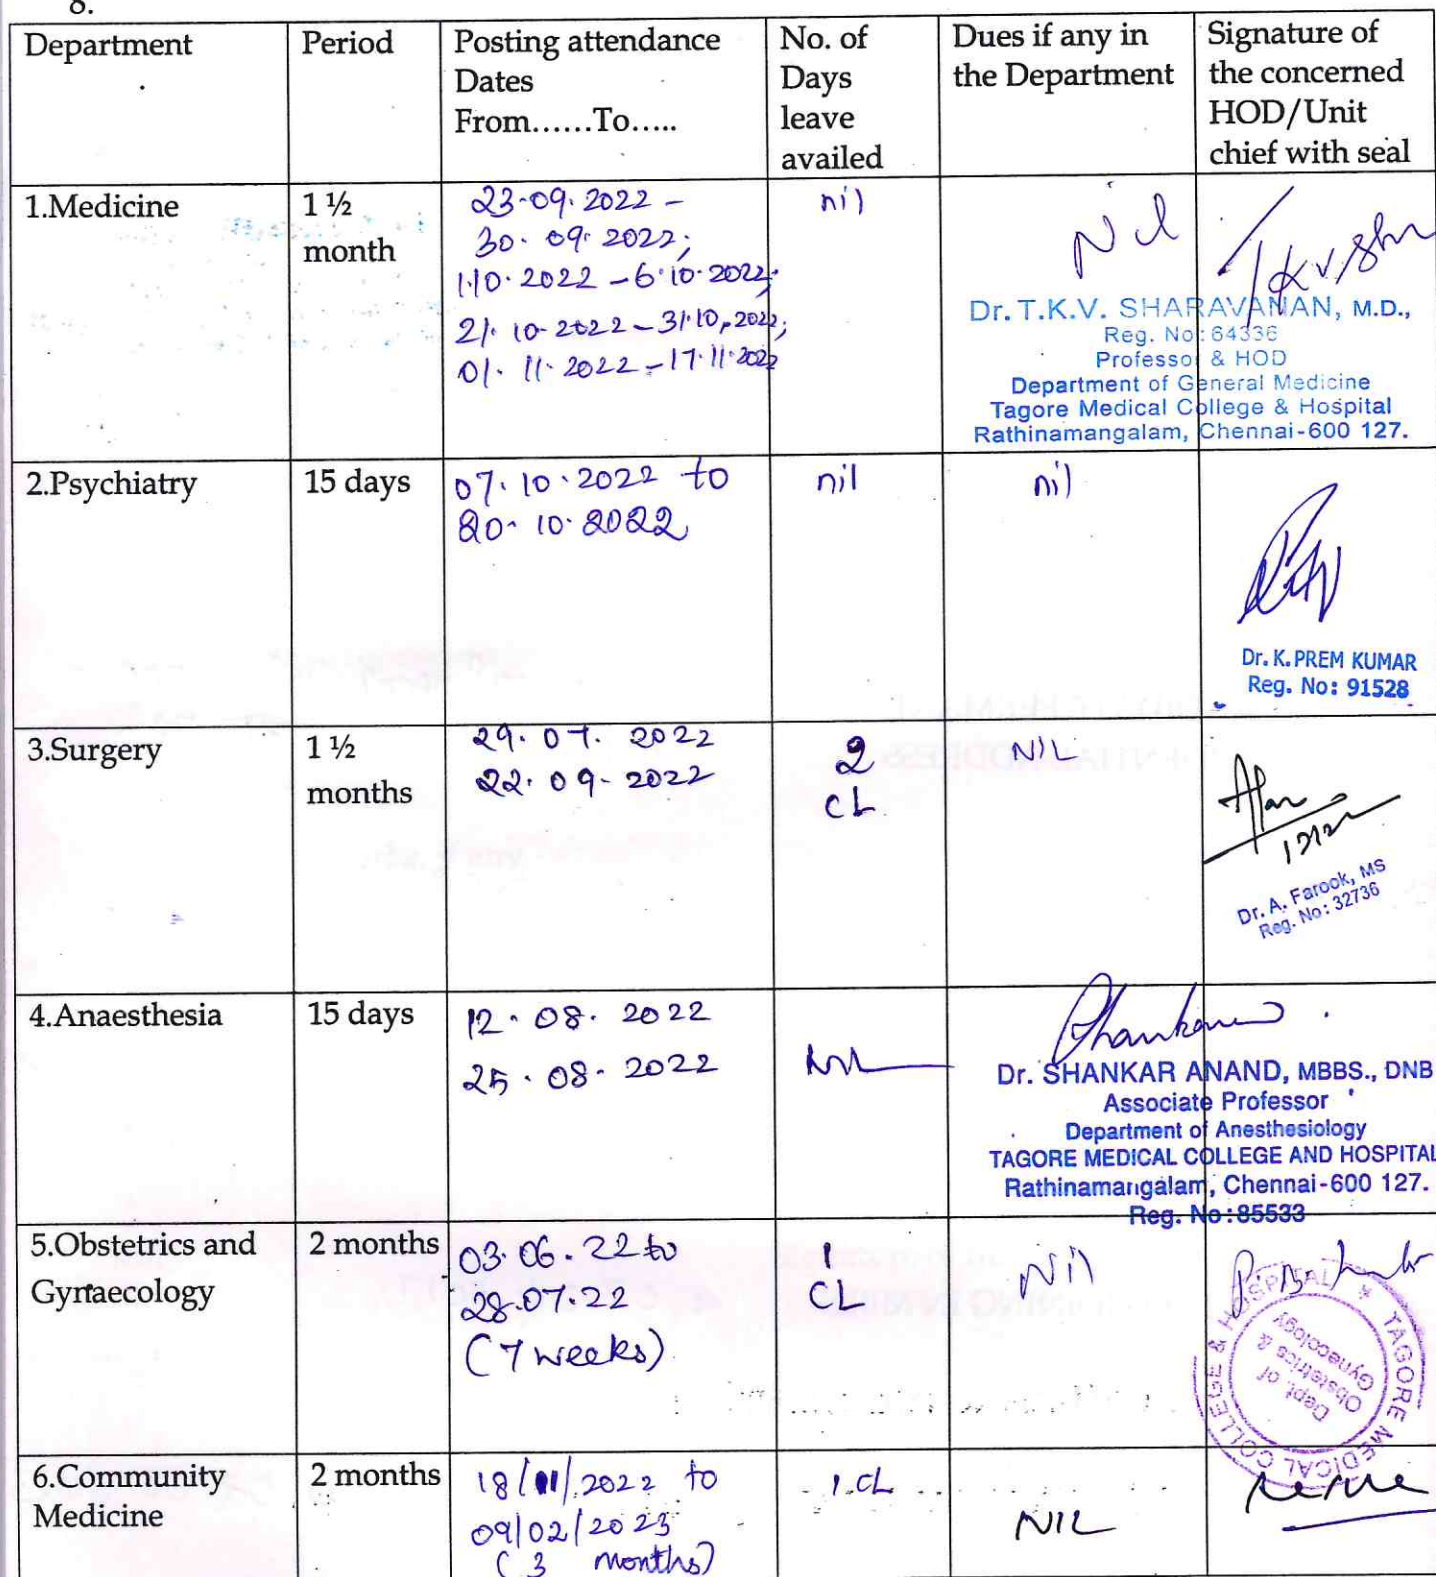 8.
Department
Period
Posting attendance
Dates
From......To.....
No. of
Days
leave
availed
Dues if any in
the Department
Signature of
the concerned
HOD/Unit
chief with seal
1.Medicine
1 ½
month
23.09.2022 -
30.09.2022;
1.10.2022 - 6.10.2022;
21.10.2022 - 31.10.2022;
01.11.2022 - 17.11.2022
nil
Nil
Dr. T.K.V. SHARAVANAN, M.D.,
Reg. No: 64336
Professor & HOD
Department of General Medicine
Tagore Medical College & Hospital
Rathinamangalam, Chennai-600 127.
2.Psychiatry
15 days
07.10.2022 to
20.10.2022
nil
nil
Dr. K. PREM KUMAR
Reg. No: 91528
3.Surgery
1 ½
months
29.07.2022
22.09.2022
2
CL
NIL
Dr. A. Farook, MS
Reg. No: 32736
4.Anaesthesia
15 days
12.08.2022
25.08.2022
Nil
Dr. SHANKAR ANAND, MBBS., DNB
Associate Professor
Department of Anesthesiology
TAGORE MEDICAL COLLEGE AND HOSPITAL
Rathinamangalam, Chennai-600 127.
Reg. No:85533
5.Obstetrics and
Gynaecology
2 months
03.06.22 to
28.07.22
(7 weeks)
1
CL
Nil
TAGORE MEDICAL COLLEGE & HOSPITAL *
Dept. of
Obstetrics &
Gynecology
6.Community
Medicine
2 months
18/11/2022 to
09/02/2023
(3 months)
1.CL
NIL